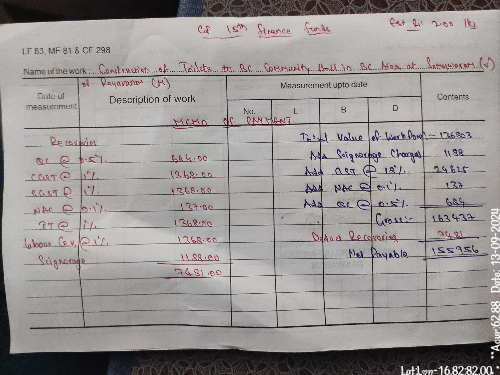 GP 15th Finance Funds
Est Rs: 2.00 lks
LF 83, MF 81 & CF 298
Name of the work: Construction of Toilets to BC Community Hall in BC Area at (V)
of Rayavaram (M)
Date of measurement
Description of work
Measurement upto date
Contents
No. L B D
MEMO OF PAYMENT
Recoveries
QC @ 0.5% 684.00
CGST @ 1% 1368.00
SGST @ 1% 1368.00
NAC @ 0.1% 137.00
IT @ 1% 1368.00
Labour Cess @ 1% 1368.00
Seignorage 1188.00
7481.00
Total Value of Work Done 136803
Add Seignorage Charges 1188
Add GST @ 18% 24625
Add NAC @ 0.1% 137
Add QC @ 0.5% 684
Gross:- 163437
Deduct Recoveries 7481
Net Payable 155956